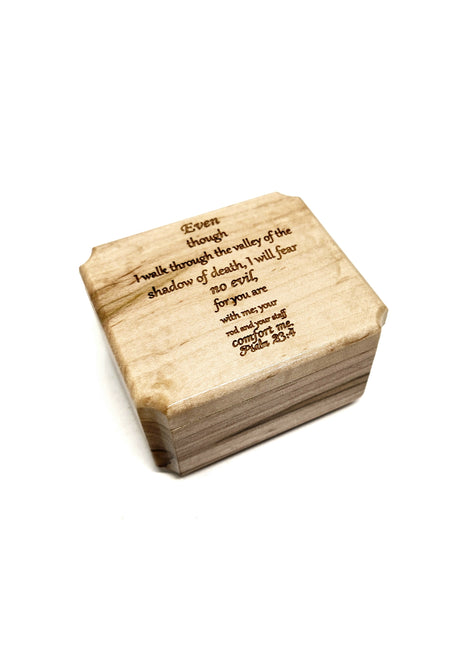 Even
though
I walk through the valley of the
shadow of death, I will fear
no evil,
for you are
with me; your
rod and your staff
comfort me.
Psalm 23:4